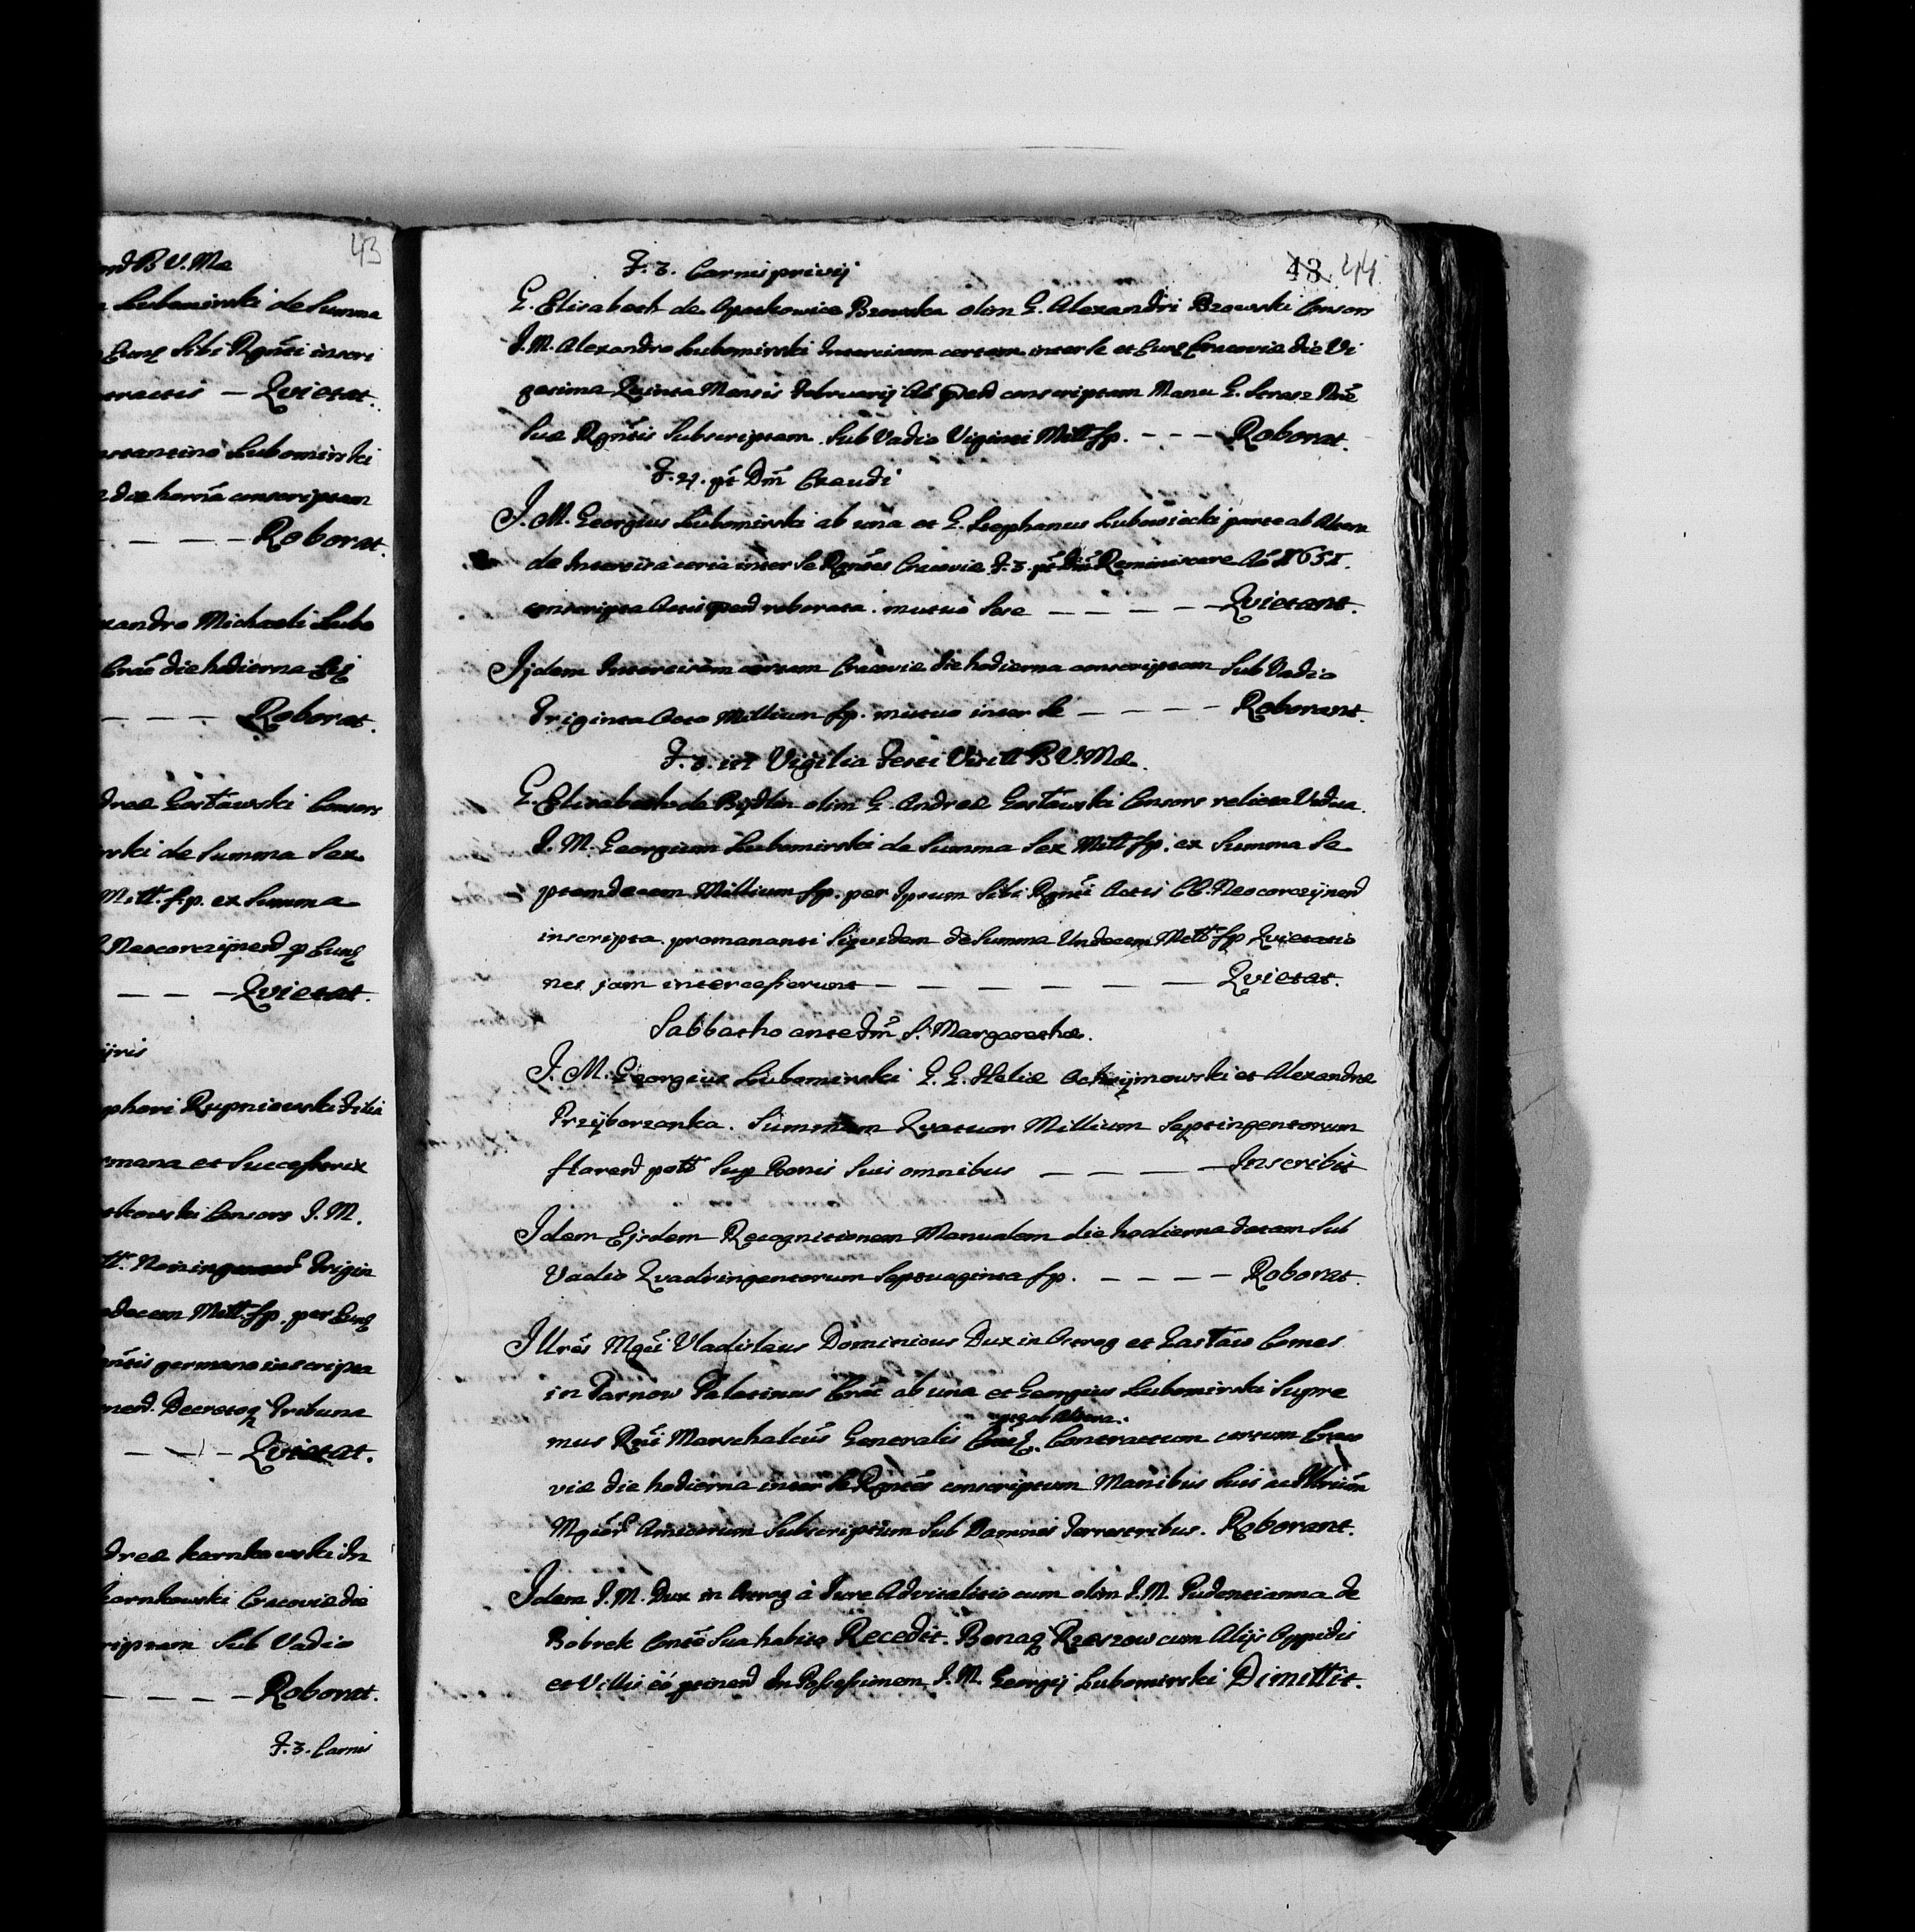 43
nd B V. Mæ
Lubomirski de Summa
Sibi Rgnti inscri
tractis — Qvietat.
stantino Lubomirski
conscriptam
— — — — Roborat.
xandro Michaeli Lubo
Crac die hodierna
— — — Roborat.
dreæ Gostawski Consors
rski de Summa Sex
Mill. fp. ex Summa
Neocorczynen p Eunq
— — — Qvietat.
yris
phori Rupniowski Filia
rmana et Successorix
kowski Consors I. M.
Noningent Trigin
decem Mill. fp. per Eunq
germano inscripta
nen. Decretoq Tribuna
— — — Qvietat.
dreæ Karnkowski in
Karnkowski Cracoviæ die
riptam Sub Vadio
— — — — Roborat.
F. 3. Carnis
F. 3. Carnisprivij
43. 44
G. Elisabeth de Opatkowice Brzowska olim G. Alexandri Brzowski Consors
I. M. Alexandro Lubomirski Intercisam certam inter se et Eunq Cracoviæ die Vi
gesima Quinta Mensis Februarij conscriptam Manu G.
Suæ Rgntis Subscriptam Sub Vadio Viginti Mill fp. — — — Roborat.
F. 4. pt Dm Exaudi
I. M. Georgius Lubomirski ab una et G. Stephanus Lubowiecki parte ab Altera
de Intercisa certa inter se Rgntes Cracoviæ F. 3. pt Dm Reminiscere Ao 1651.
conscripta Actis roborata mutuo sese — — — — — Qvietant.
Ijdem Intercisam certam Cracoviæ die hodierna conscriptam Sub Vadio
Triginta Octo Millium fp. mutuo inter se — — — — Roborant.
F. 3. in Vigilia Festi Visitt B V. Mæ.
G. Elisabeth de Bydlin olim G. Andreæ Gostawski Consors relicta Vidua.
I. M. Georgium Lubomirski de Summa Sex Mill fp. ex Summa Se
ptemdecem Millium fp. per Ipsum Sibi Rgnti Actis CC. Neocorczynen
inscripta promananti Siqvidem de Summa Undecem Mill fp Qvietatio
nes jam intercesserunt — — — — — — — Qvietat.
Sabbatho ante Fm S. Margarethæ.
I. M. Georgius Lubomirski G. G. Heliæ et Alexandræ
Przyborzanka. Summam Qvatuor Millium Septingentorum
floren poll Sup Bonis Suis omnibus — — — — Inscribit
Idem Ejsdem Recognitionem Manualem die hodierna datam Sub
Vadio Qvadringentorum Septuaginta fp. — — — — Roborat.
Illres Mgci Vladislaus Dominicus Dux in Ostrog et Zasław Comes
in Tarnow Palatinus Crac ab una et Georgius Lubomirski Supre
pte ab Altera.
mus Rni Marschalcus Generalis Contractum certum Craco
viæ die hodierna inter se Rgntes conscriptum Manibus Suis ac
Mgcor Amicorum Subscriptum Sub Damnis Terrestribus. Roborant.
Idem I. M. Dux in Ostrog à Jure Advitalitio cum olim I. M. Pudentianna de
Bobrek Conte Sua habito Recedit. Bonaq Rzeszow cum Alijs Oppidis
et Villis eo ptinen In Possessionem I. M. Georgij Lubomirski Dimittit.